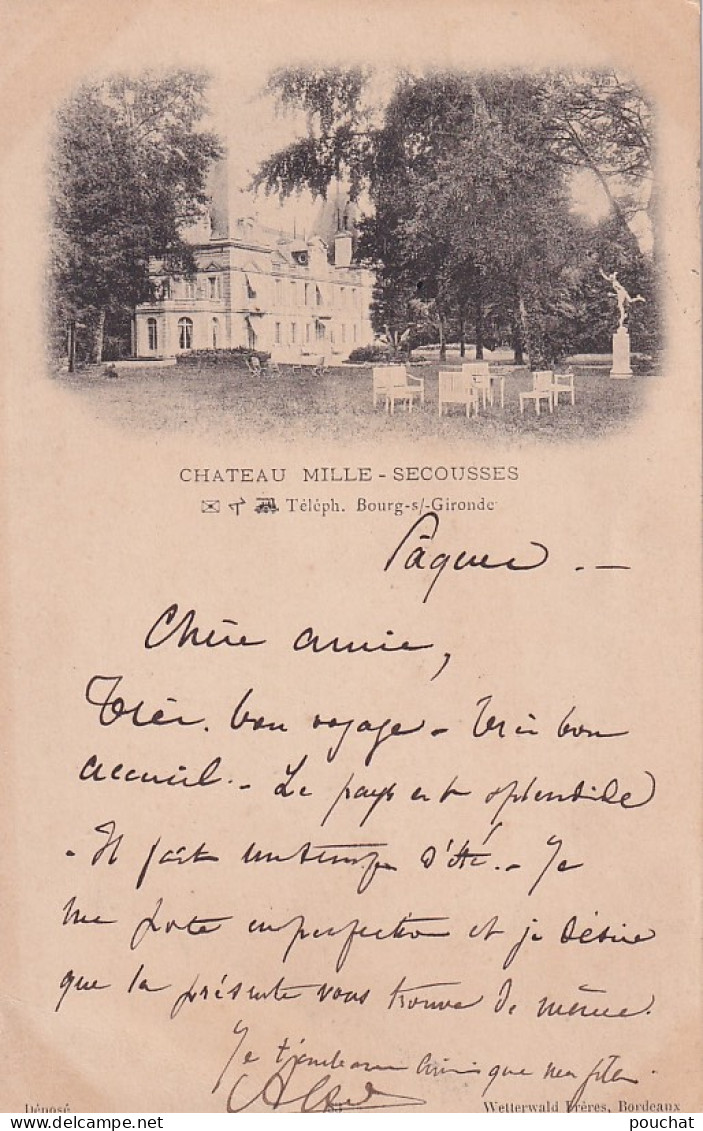 CHATEAU MILLE-SECOUSSES
Téléph. Bourg-s/-Gironde
Pâques. —
Chère amie,
Très bon voyage - Très bon
accueil. - Le pays est splendide
- Il fait un temps d'Été. - Je
me porte en perfection et je désire
que la présente vous trouve de même.
Je t'embrasse ainsi que
Déposé
Wetterwald Frères, Bordeaux
pouchat
www.delcampe.net